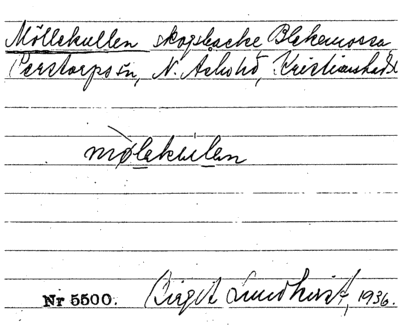 Möllekullen skogsbacke Blekemossa
Perstorps sn, N. Åsbo hd, Kristianstads l
mølekúlen
Nr 5500. Birgit Lundkvist, 1936.